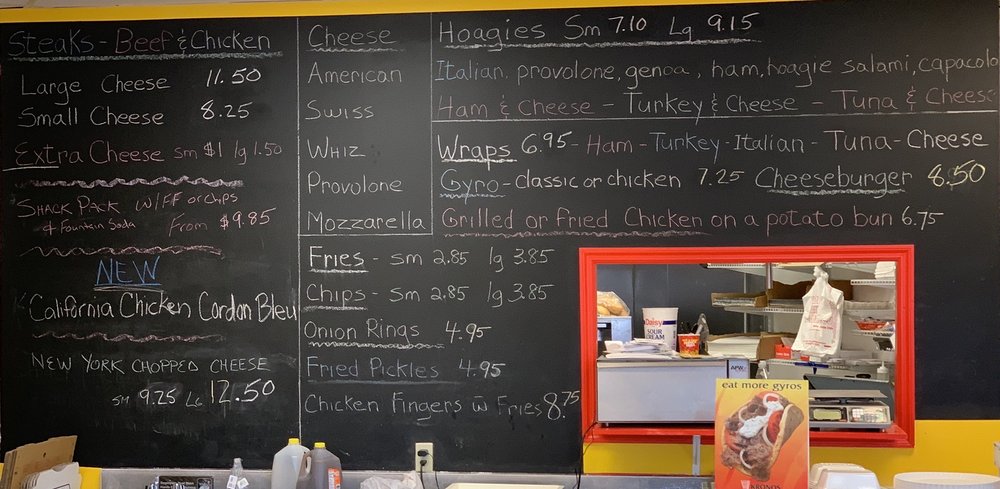 Steaks - Beef & Chicken
Large Cheese 11.50
Small Cheese 8.25
Extra Cheese sm $1 lg 1.50
Shack Pack w/FF or Chips
& Fountain Soda From $9.85
NEW
California Chicken Cordon Bleu
New York Chopped Cheese
sm 9.25 Lg 12.50
Cheese
American
Swiss
Whiz
Provolone
Mozzarella
Hoagies Sm 7.10 Lg 9.15
Italian. provolone, genoa, ham, hoagie salami, capacolo
Ham & Cheese - Turkey & Cheese - Tuna & Cheese
Wraps 6.95 - Ham - Turkey - Italian - Tuna - Cheese
Gyro - classic or chicken 7.25 Cheeseburger 8.50
Grilled or Fried Chicken on a potato bun 6.75
Fries - sm 2.85 lg 3.85
Chips - sm 2.85 lg 3.85
Onion Rings 4.95
Fried Pickles 4.95
Chicken Fingers w̄ Fries 8.75
Daisy
SOUR
CREAM
APW
eat more gyros
KRONOS